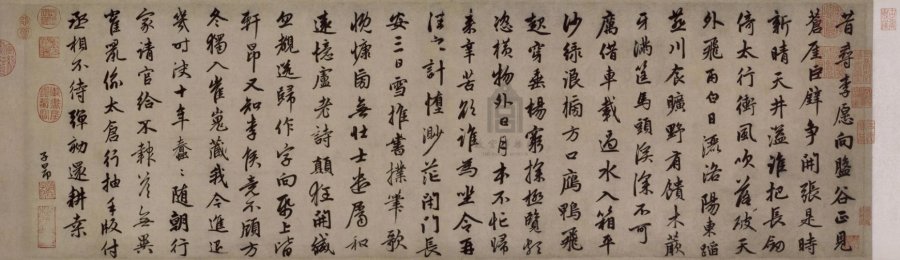 昔尋李愿向盤谷正見
蒼崖巨壁爭開張是時
新晴天井溢誰把長劒
倚太行衝風吹落破天
外飛雨白日灑洛陽東蹈
燕川食曠野有饋木蕨
牙滿筐馬頭溪深不可
厲借車載過水入箱平
沙綠浪搒方口鴈鴨飛
起穿垂楊窮探極覽頗
恣橫物外日月本不忙歸
來辛苦欲誰為坐令再
往之計墮眇茫閉門長
安三日雪推書撲筆歌
慨慷旁無壯士遣屬和
遠憶盧老詩顛狂開緘
忽覩送歸作字向紙上皆
軒昂又知李侯竟不顧方
冬獨入崔嵬藏我今進退
幾時決十年蠢〻隨朝行
家請官給不報答無異
雀鼠偷太倉行抽手版付
丞相不待彈劾還耕桑
子昂